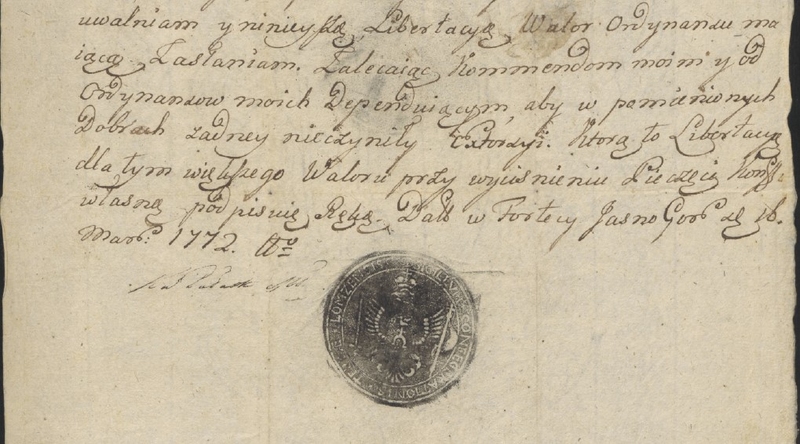 uwalniam y ninieyszą Libertacyą Walor Ordynansu ma
iącą Zasłaniam. Zalecaiąc Kommendom moim y od
Ordynansow moich Dependuiącym, aby w pomienionych
Dobrach żadney nieczyniły Extorzyi. Ktorą to Libertacyą
dla tym większego Waloru przy wyciśnieniu Pieczęci Konf:
własną podpisuię Ręką. Datt w Fortecy JasnoGorˢ: 16.
Mar: 1772.
LOMZEN